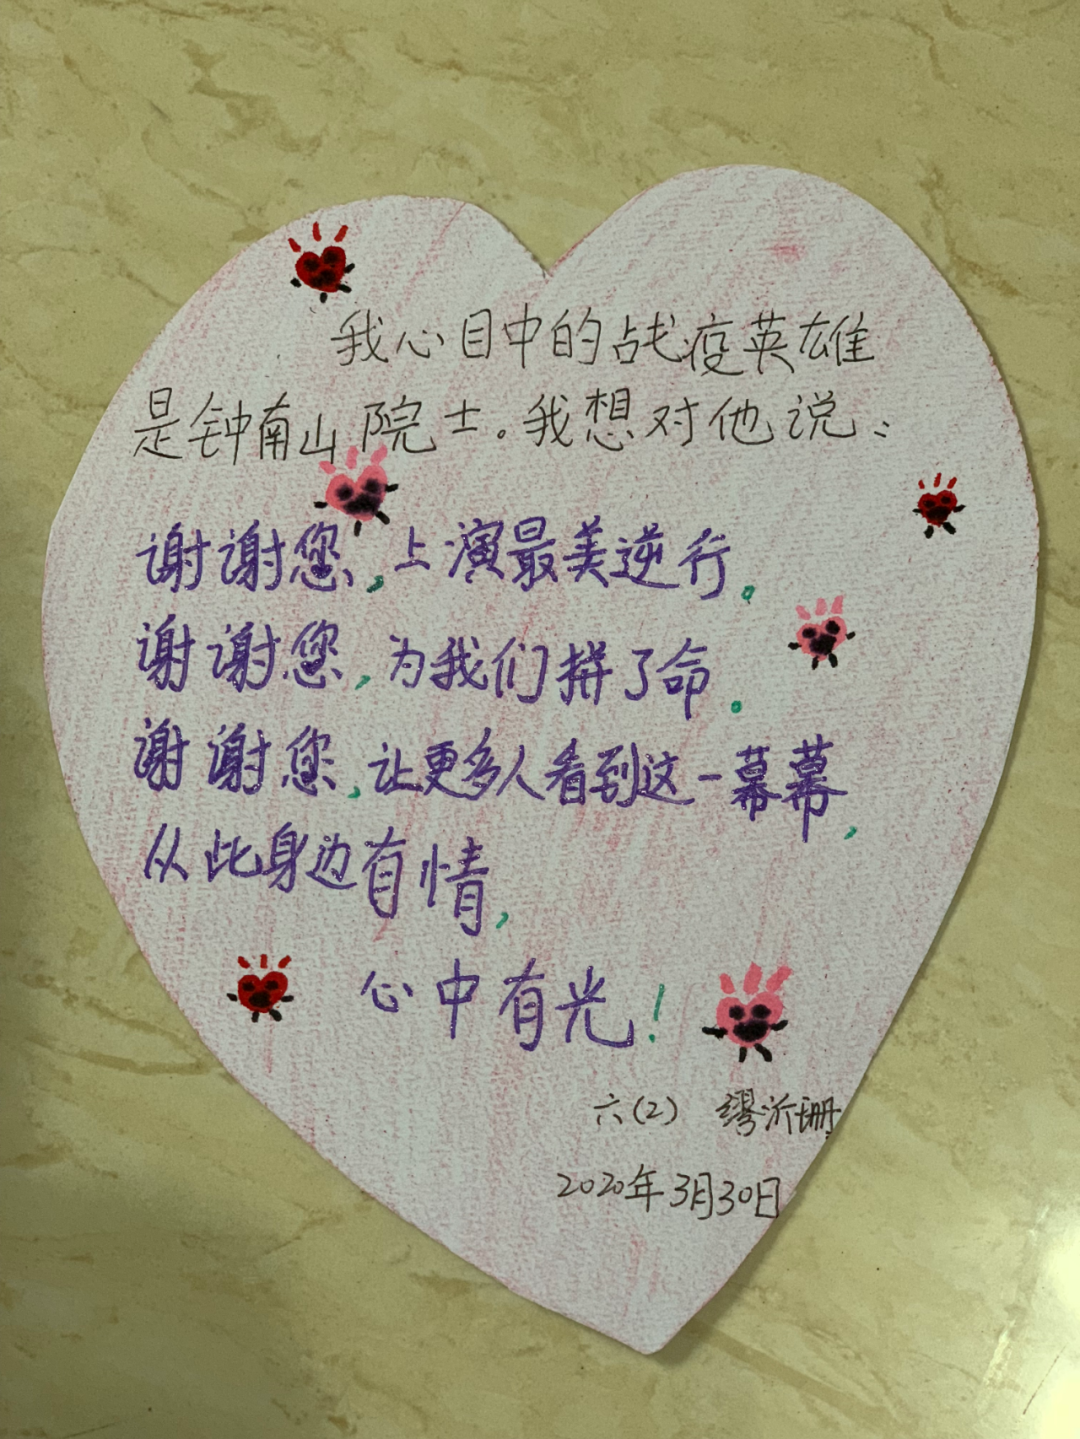 我心目中的战疫英雄
是钟南山院士。我想对他说：
谢谢您，上演最美逆行。
谢谢您，为我们拼了命。
谢谢您，让更多人看到这一幕幕，
从此身边有情，
心中有光！
六(2) 缪沂珊
2020年3月30日